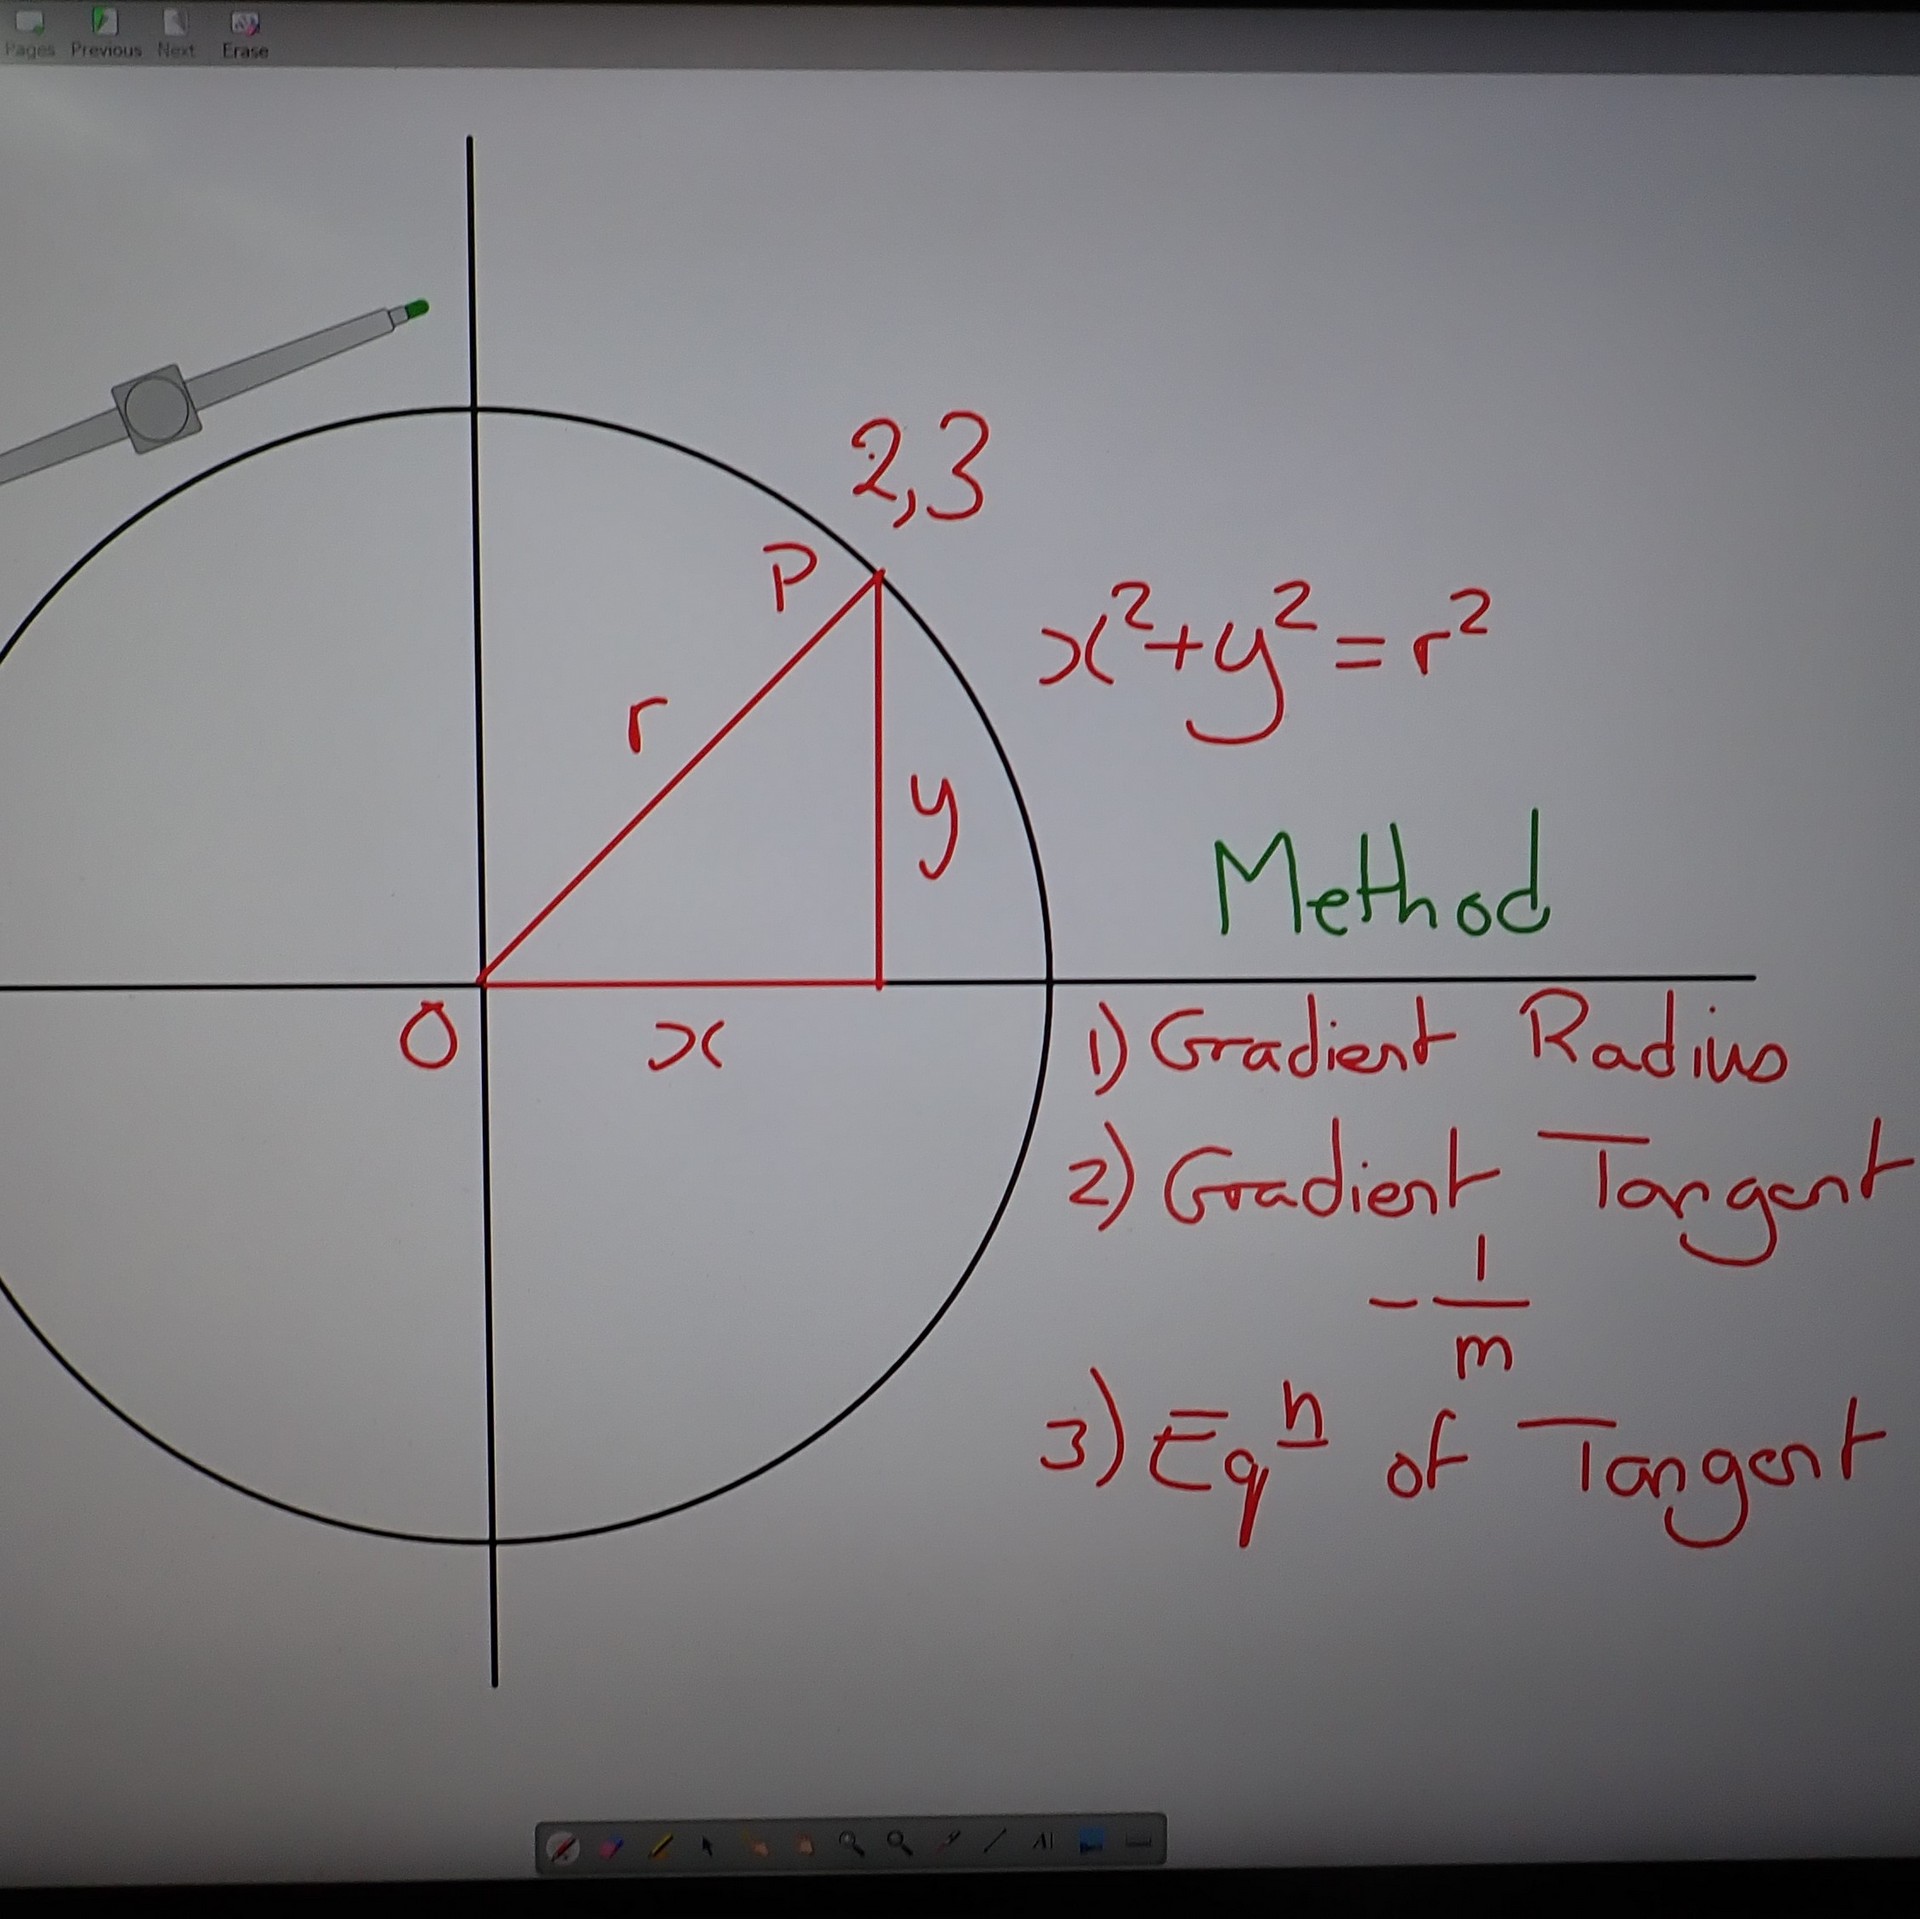 Pages Previous Next Erase
2,3
P
x²+y²=r²
r
y
Method
O
x
1) Gradient Radius
2) Gradient Tangent
-1/m
3) Eqⁿ of Tangent
AI